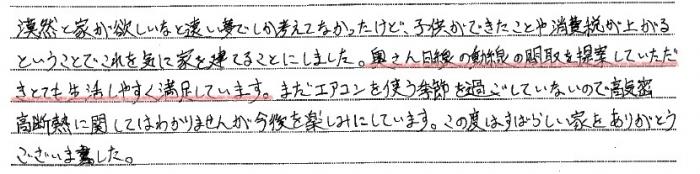 漠然と家が欲しいなと遠い夢でしか考えてなかったけど、子供ができたことや消費税が上がる
ということでこれを気に家を建てることにしました。奥さん目線の動線の間取を提案していただ
きとても生活しやすく満足しています。まだエアコンを使う季節を過ごしていないので高気密
高断熱に関してはわかりませんが今後を楽しみにしています。この度はすばらしい家をありがとう
ございました。